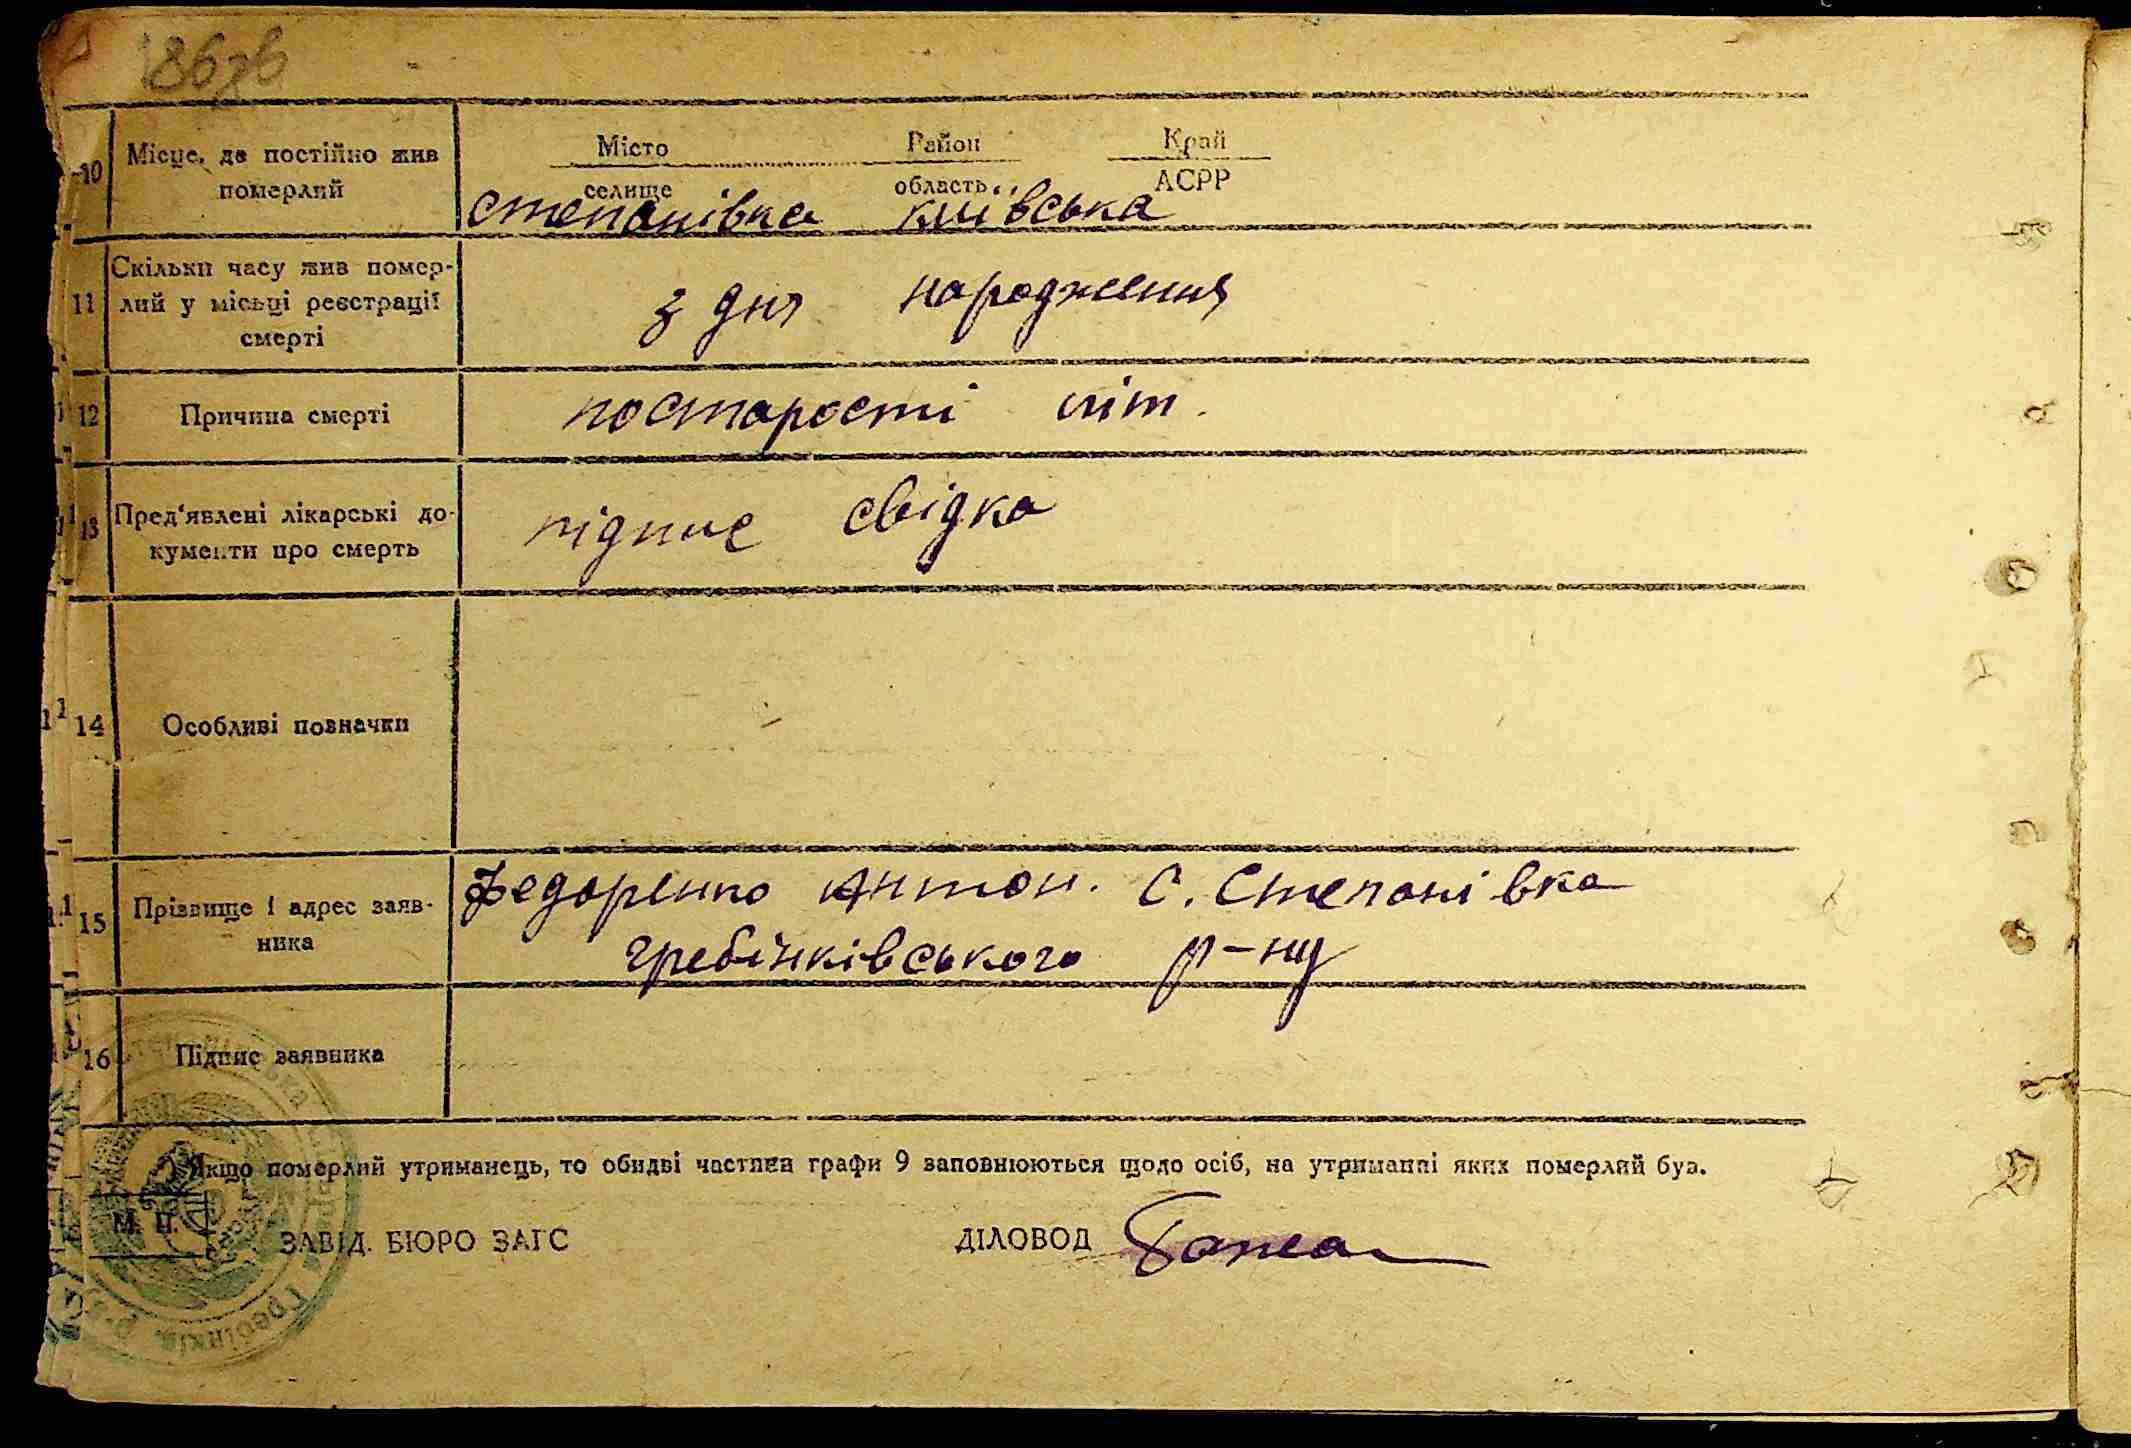 10 Місце, де постійно жив померлий
Місто Район Край
селище область АСРР
степанівка київська
11 Скільки часу жив померлий у місці реєстрації смерті
з дня народження
12 Причина смерті
постарості літ.
13 Пред'явлені лікарські документи про смерть
підпис свідка
14 Особливі позначки
15 Прізвище і адрес заявника
Федоренко Антон. С. Степанівка
гребінківського р-ну
16 Підпис заявника
Якщо померлий утриманець, то обидві частини графи 9 заповнюються щодо осіб, на утриманні яких померлий був.
М. П.
ЗАВІД. БЮРО ЗАГС ДІЛОВОД